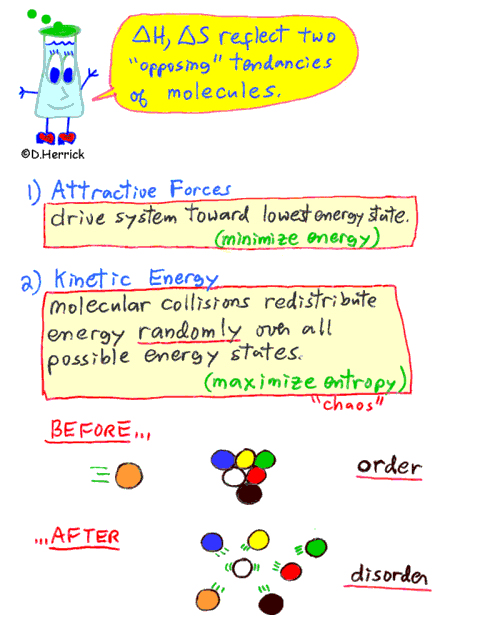 ΔH, ΔS reflect two
"opposing" tendancies
of molecules.
©D.Herrick
1) Attractive Forces
drive system toward lowest energy state.
(minimize energy)
2) Kinetic Energy
molecular collisions redistribute
energy randomly over all
possible energy states.
(maximize entropy)
"chaos"
BEFORE...
order
...AFTER
disorder